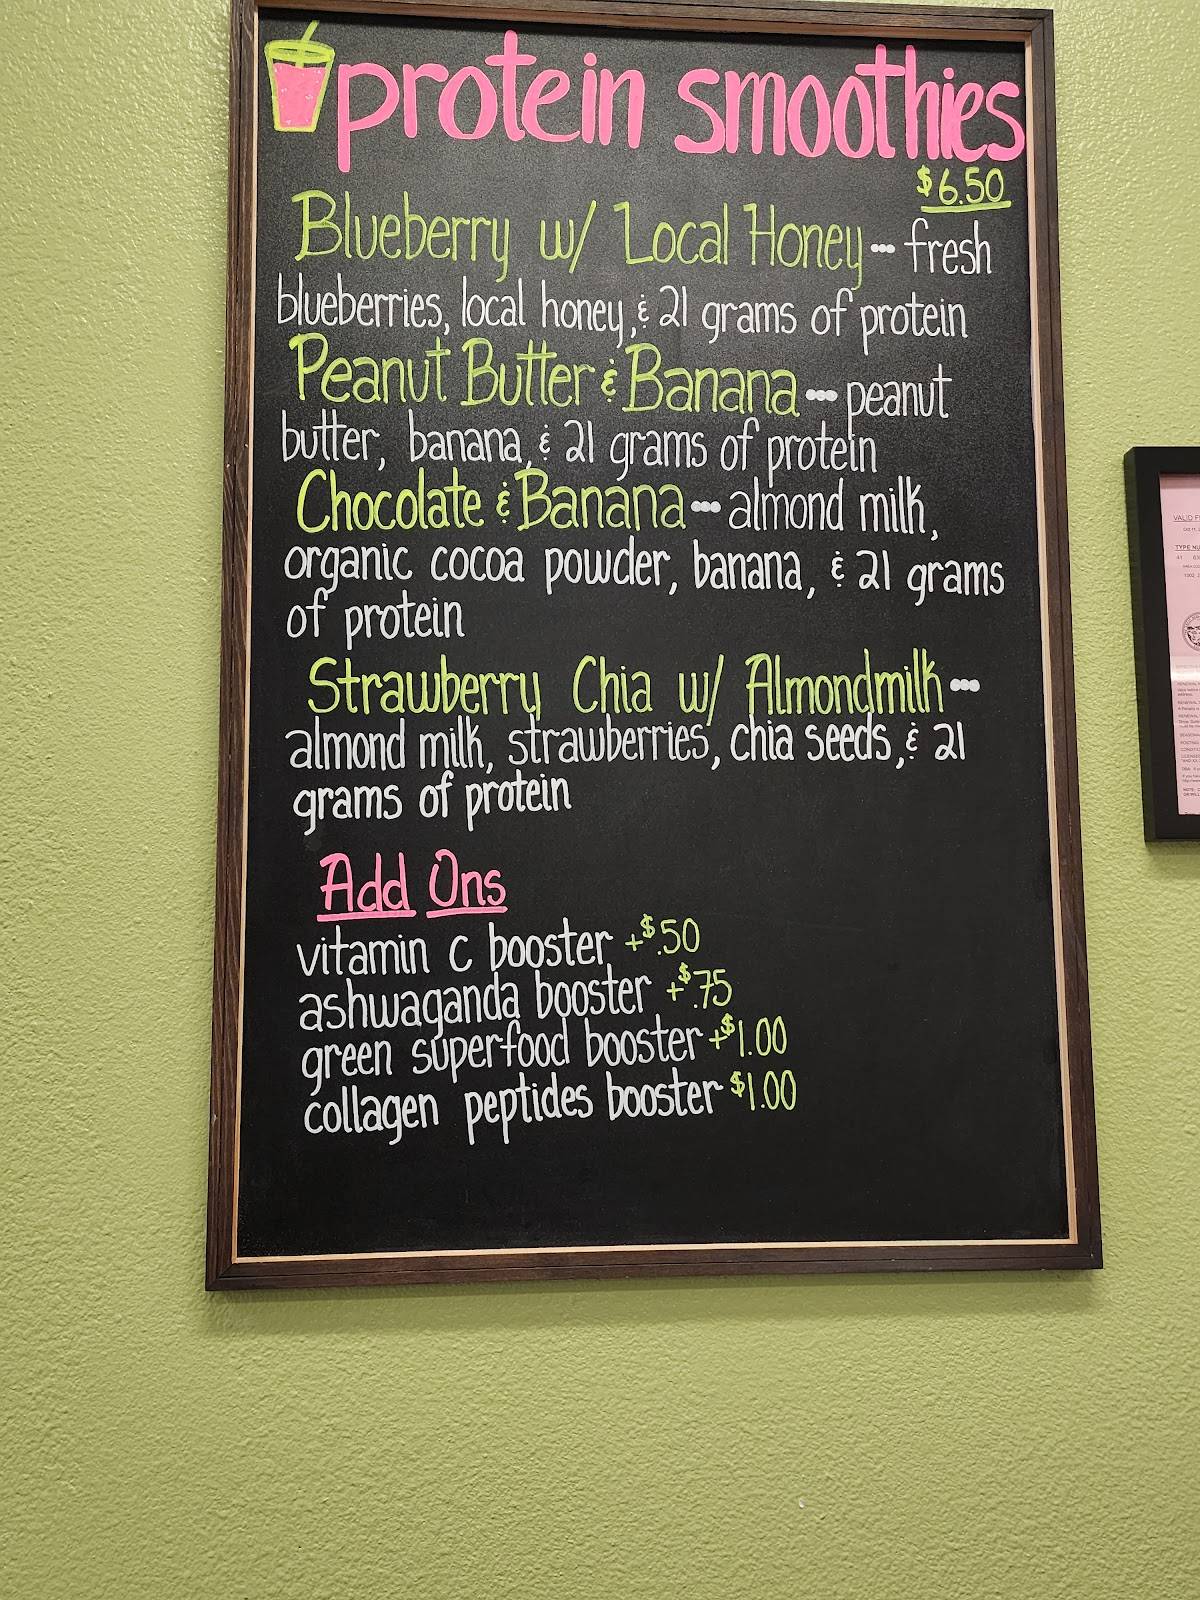 protein smoothies
$6.50
Blueberry w/ Local Honey... fresh
blueberries, local honey, & 21 grams of protein
Peanut Butter & Banana... peanut
butter, banana, & 21 grams of protein
Chocolate & Banana... almond milk,
organic cocoa powder, banana, & 21 grams
of protein
Strawberry Chia w/ Almondmilk...
almond milk, strawberries, chia seeds, & 21
grams of protein
Add Ons
vitamin c booster +$.50
ashwaganda booster +$.75
green superfood booster +$1.00
collagen peptides booster $1.00
VALID
TYPE